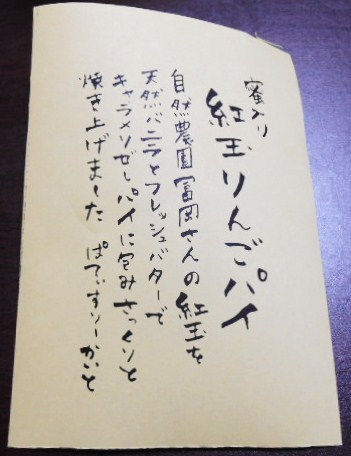 蜜入り
紅玉りんごパイ
自然農園冨岡さんの紅玉を
天然バニラとフレッシュバターで
キャラメリゼしパイに包みさっくりと
焼き上げました ぱてぃすりーかいと